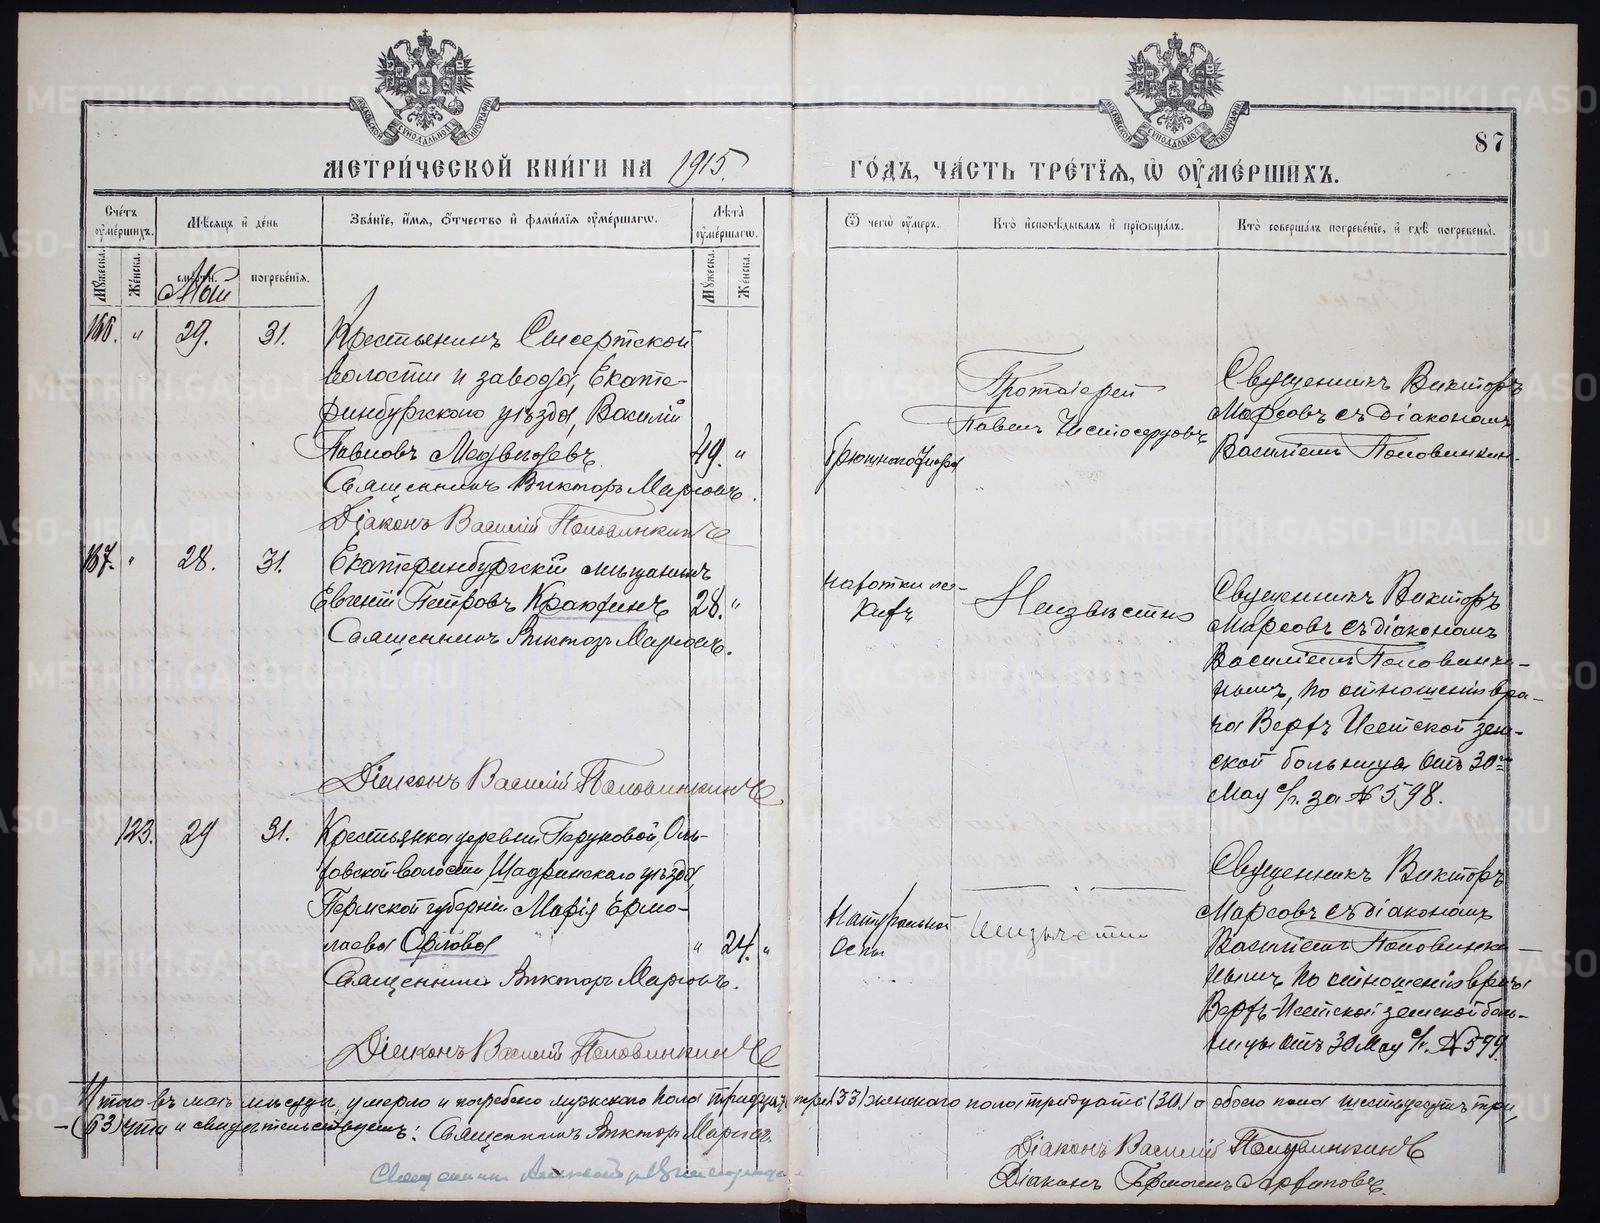 87
МЕТРИЧЕСКОЙ КНИГИ НА 1915
ГОДЪ, ЧАСТЬ ТРЕТІЯ, Ѡ ОУМЕРШИХЪ.
Счетъ оумершихъ.
Мѣсяцъ и день
Званіе, имя, отчество и фамилія оумершагѡ.
Лѣта оумершагѡ.
Ѿ чегѡ оумеръ.
Кто исповѣдывалъ и пріобщалъ.
Кто совершалъ погребеніе, и гдѣ погребены.
Мужеска.
Женска.
смерти.
погребенія.
Мужеска.
Женска.
Май
166. " 29. 31.
Крестьянинъ Сысертской
волости и завода, Екате-
ринбургскаго уѣзда, Василій
Павловъ Медвѣдевъ 49. "
Священникъ Викторъ Марсовъ.
Діаконъ Василій Половинкинъ
Брюшного тифа
Протоіерей
Павелъ
Священникъ Викторъ
Марсовъ съ діакономъ
Василіемъ Половинкин.
167. " 28. 31.
Екатеринбургскій мѣщанинъ
Евгеній Петровъ 28. "
Священникъ Викторъ Марсовъ.
Діаконъ Василій Половинкинъ
Неизвѣстно
Священникъ Викторъ
Марсовъ съ діакономъ
Василіемъ Половинки-
нымъ, по отношенію вра-
ча Верхъ Исетской зем-
ской больницы отъ 30
Мая с/г. за № 598.
123. 29 31.
Крестьянка деревни
волости, Шадринскаго уѣзда,
Пермской губерніи Марія Ермо-
лаева " 24. "
Священникъ Викторъ Марсовъ.
Діаконъ Василій Половинкинъ
Натуральной
оспы
Неизвѣстно
Священникъ Викторъ
Марсовъ съ діакономъ
Василіемъ Половинки-
нымъ по отношенію врача
Верхъ-Исетской земской боль-
ницы отъ 30 Мая с/г. № 599.
Итого въ маѣ мѣсяцѣ умерло и погребено мужского пола тридцать три (33) женского пола тридцать (30) а обоего пола шестьдесятъ три
(63) что и свидѣтельствуемъ: Священникъ Викторъ Марсовъ.
Діаконъ Василій Половинкинъ
Священникъ
Діаконъ
METRIKI.GASO-URAL.RU